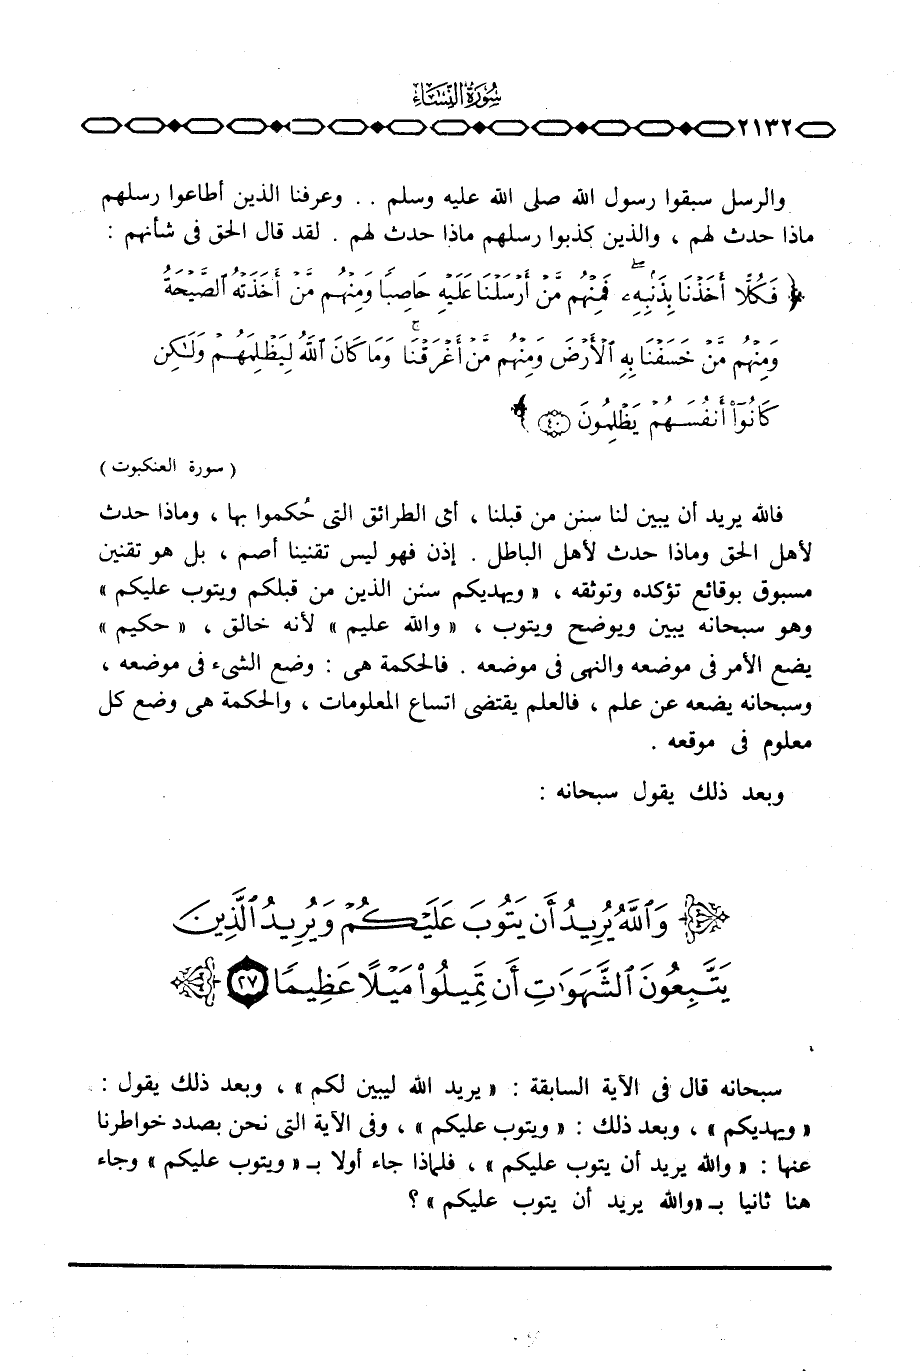 سورة النساء
٢١٣٢
والرسل سبقوا رسول الله صلى الله عليه وسلم . . وعرفنا الذين أطاعوا رسلهم
ماذا حدث لهم ، والذين كذبوا رسلهم ماذا حدث لهم . لقد قال الحق فى شأنهم :
﴿ فَكُلًّا أَخَذْنَا بِذَنۢبِهِۦ ۖ فَمِنْهُم مَّنْ أَرْسَلْنَا عَلَيْهِ حَاصِبًا وَمِنْهُم مَّنْ أَخَذَتْهُ ٱلصَّيْحَةُ
وَمِنْهُم مَّنْ خَسَفْنَا بِهِ ٱلْأَرْضَ وَمِنْهُم مَّنْ أَغْرَقْنَا ۚ وَمَا كَانَ ٱللَّهُ لِيَظْلِمَهُمْ وَلَٰكِن
كَانُوٓا۟ أَنفُسَهُمْ يَظْلِمُونَ ٤٠ ﴾
( سورة العنكبوت )
فالله يريد أن يبين لنا سنن من قبلنا ، أى الطرائق التى حُكموا بها ، وماذا حدث
لأهل الحق وماذا حدث لأهل الباطل . إذن فهو ليس تقنينا أصم ، بل هو تقنين
مسبوق بوقائع تؤكده وتوثقه ، « ويهديكم سنن الذين من قبلكم ويتوب عليكم »
وهو سبحانه يبين ويوضح ويتوب ، « والله عليم » لأنه خالق ، « حكيم »
يضع الأمر فى موضعه والنهى فى موضعه . فالحكمة هى : وضع الشىء فى موضعه ،
وسبحانه يضعه عن علم ، فالعلم يقتضى اتساع المعلومات ، والحكمة هى وضع كل
معلوم فى موقعه .
وبعد ذلك يقول سبحانه :
وَٱللَّهُ يُرِيدُ أَن يَتُوبَ عَلَيْكُمْ وَيُرِيدُ ٱلَّذِينَ
يَتَّبِعُونَ ٱلشَّهَوَٰتِ أَن تَمِيلُوا۟ مَيْلًا عَظِيمًا ٢٧
سبحانه قال فى الآية السابقة : « يريد الله ليبين لكم » ، وبعد ذلك يقول :
« ويهديكم » ، وبعد ذلك : « ويتوب عليكم » ، وفى الآية التى نحن بصدد خواطرنا
عنها : « والله يريد أن يتوب عليكم » ، فلماذا جاء أولا بـ « ويتوب عليكم » وجاء
هنا ثانيا بـ «والله يريد أن يتوب عليكم »؟